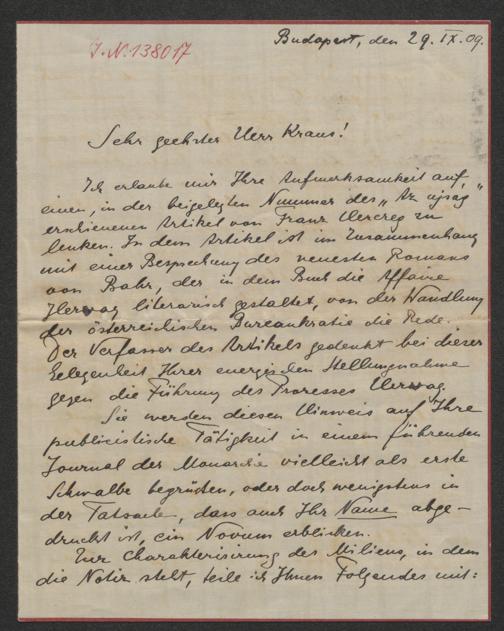 J.N. 138017
Budapest, den 29. IX. 09.
Sehr geehrter Herr Kraus!
Ich erlaube mir Ihre Aufmerksamkeit auf
einen, in der beigelegten Nummer des „Az ujsag"
erschienenen Artikel von Franz Herczeg zu
lenken. In dem Artikel ist im Zusammenhang
mit einer Besprechung des neuesten Romans
von Bahr, der in dem Buch die Affaire
Hervay literarisch gestaltet, von der Wandlung
der österreichischen Bureaukratie die Rede.
Der Verfasser des Artikels gedenkt bei dieser
Gelegenheit Ihrer energischen Stellungnahme
gegen die Führung des Prozesses Hervay.
Sie werden diesen Hinweis auf Ihre
publicistische Tätigkeit in einem führenden
Journal der Monarchie vielleicht als erste
Schwalbe begrüßen, oder doch wenigstens in
der Tatsache, dass auch Ihr Name abge-
druckt ist, ein Novum erblicken.
Zur Charakterisirung des Milieus, in dem
die Notiz steht, teile ich Ihnen Folgendes mit: